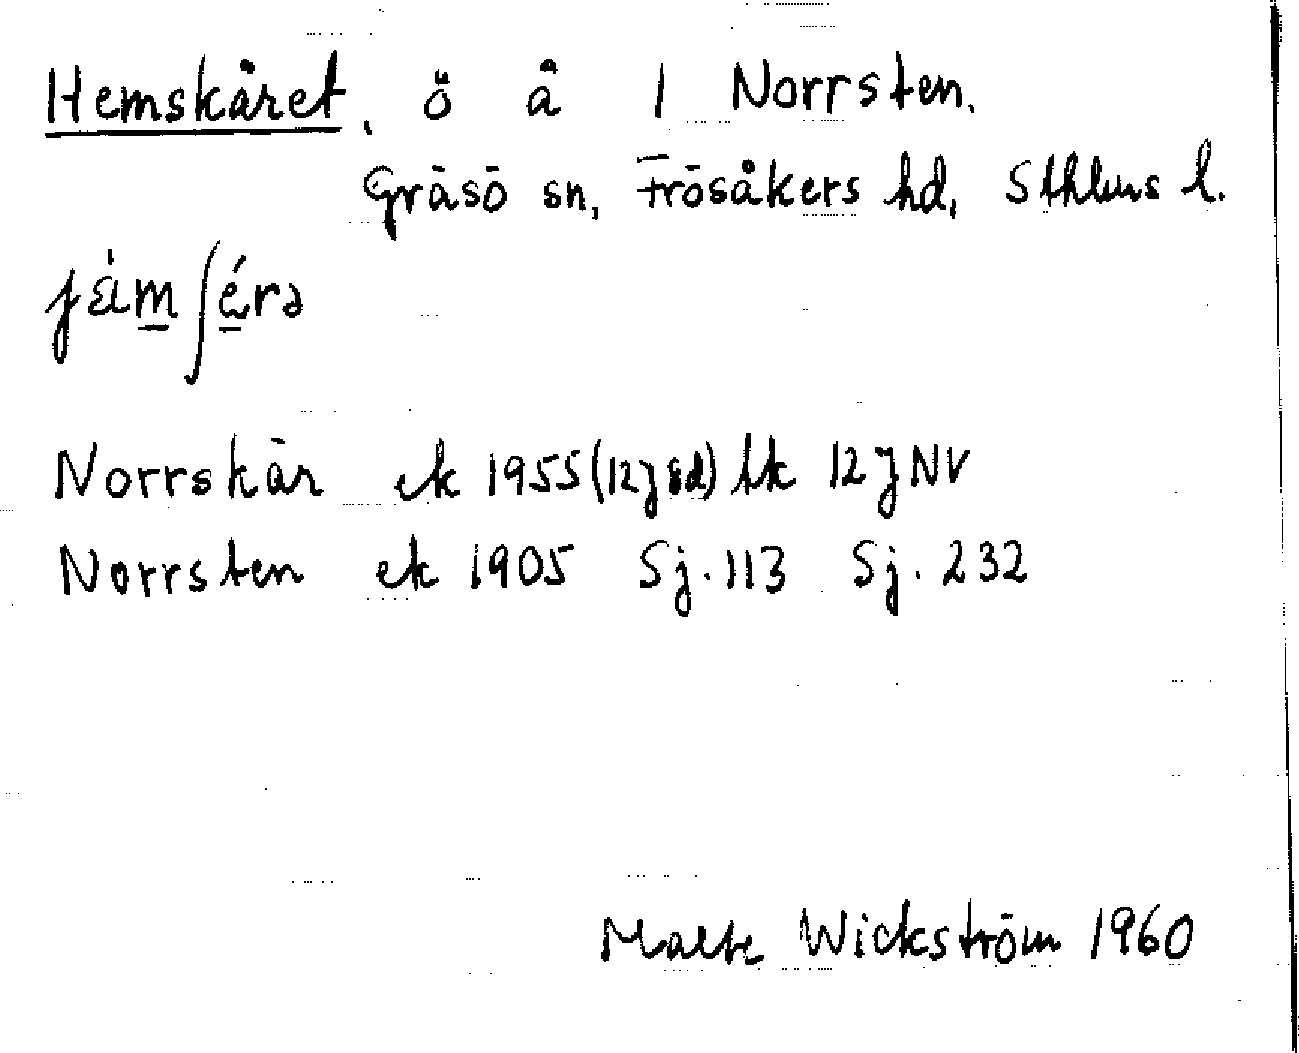 Hemskäret, ö å 1 Norrsten.
Gräsö sn, Frösåkers hd, Sthlms l.
Norrskär ek 1955 (12J Sd) tk 12J NV
Norrsten ek 1905 Sj. 113 Sj. 232
Malte Wickström 1960